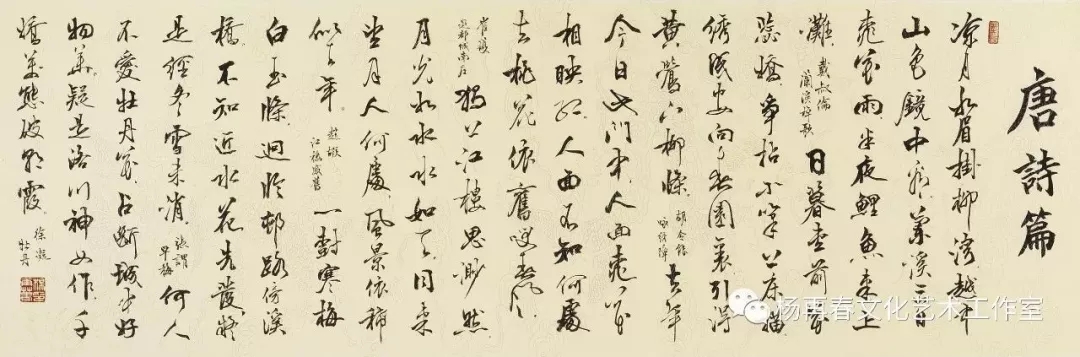 唐詩篇
凉月如眉掛柳湾越中
山色鏡中看蘭溪三日
桃花雨半夜鯉魚来上
灘 戴叔倫 蘭溪棹歌 日暮堂前花
蕊嬌争拈小筆上床描
绣成安向春園裏引得
黄鶯下柳條 胡令能 咏绣障 去年
今日此門中人面桃花
相映红人面不知何處
去桃花依舊笑春风
崔護 題都城南庄 獨上江樓思渺然
月光如水水如天同来
望月人何處風景依稀
似去年 趙嘏 江樓感舊 一樹寒梅
白玉條迥臨邨路傍溪
橋不知近水花先發疑
是經冬雪未消 張謂 早梅 何人
不愛牡丹花占斷城中好
物華疑是洛川神女作千
嬌萬態破朝霞 徐凝 牡丹
杨再春文化艺术工作室